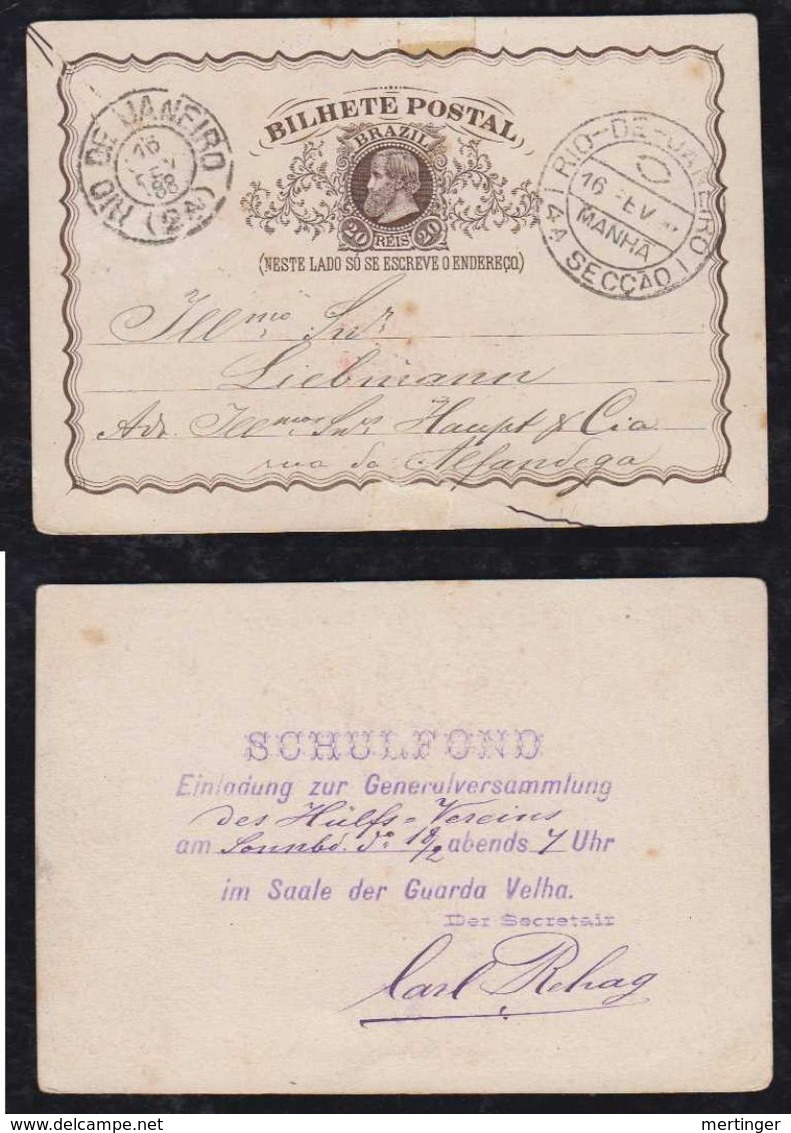 BILHETE POSTAL
BRAZIL
20 REIS 20
(NESTE LADO SÓ SE ESCREVE O ENDEREÇO.)
RIO DE JANEIRO
16
FEV
88
(2A)
RIO-DE-JANEIRO
16 FEV
MANHÃ
4A SECCÃO
Illmo Snr
Liebmann
Adr. Illmos Snrs Haupt & Cia
rua da Alfandega
SCHULFOND
Einladung zur Generalversammlung
des Hülfs-Vereins
am Sonnbd. d. 18/2 abends 7 Uhr
im Saale der Guarda Velha.
Der Secretair
Carl Rehag
mertinger